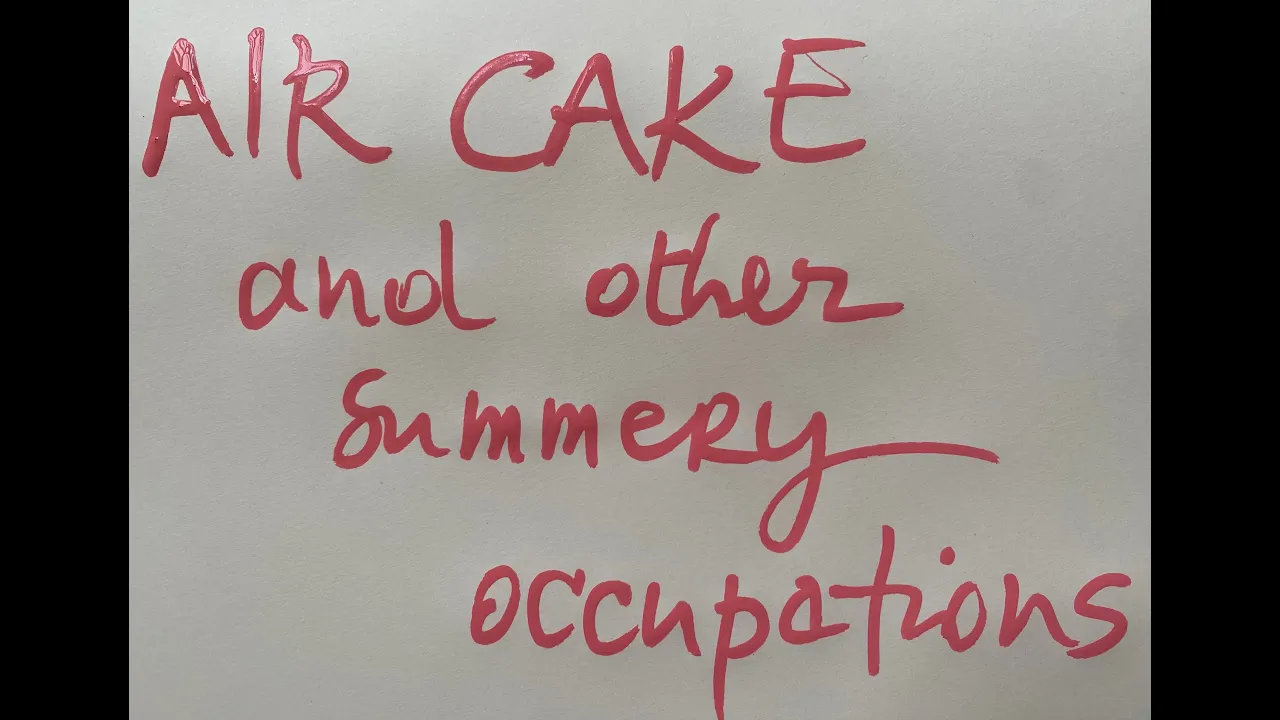 AIR CAKE
and other
Summery
occupations